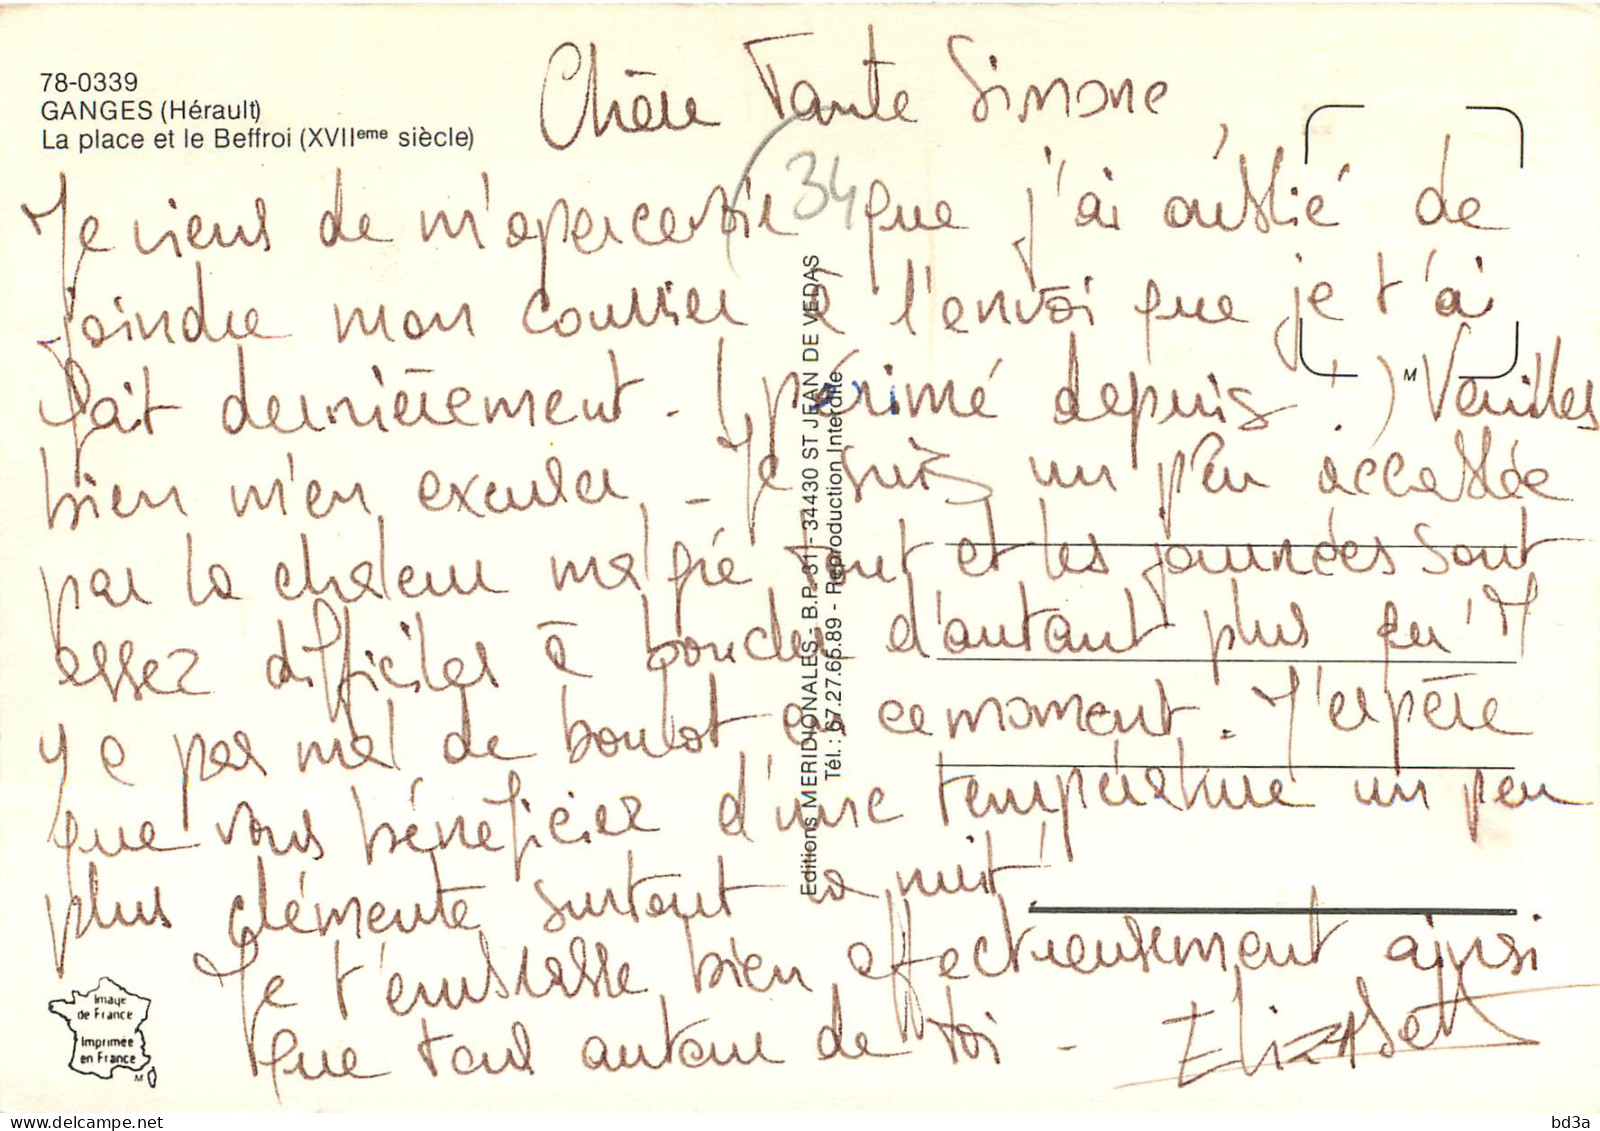 78-0339
GANGES (Hérault)
La place et le Beffroi (XVIIeme siècle)
Chère Tante Simone
34
Je viens de m'apercevoir que j'ai oublié de
joindre mon courrier à l'envoi que je t'ai
fait dernièrement. (périmé depuis !) Veuilles
bien m'en excuser - Je suis un peu accablée
par la chaleur malgré tout et les journées sont
assez difficiles à boucler d'autant plus qu'il
y a pas mal de boulot en ce moment. J'espère
que vous bénéficiez d'une température un peu
plus clémente surtout la nuit !
Je t'embrasse bien affectueusement ainsi
que tous autour de toi -
Elizabeth
Editions MERIDIONALES - B.P. 31 - 34430 ST JEAN DE VEDAS
Tél. : 67.27.65.89 - Reproduction Interdite
M
Image
de France
Imprimée
en France
M
bd3a